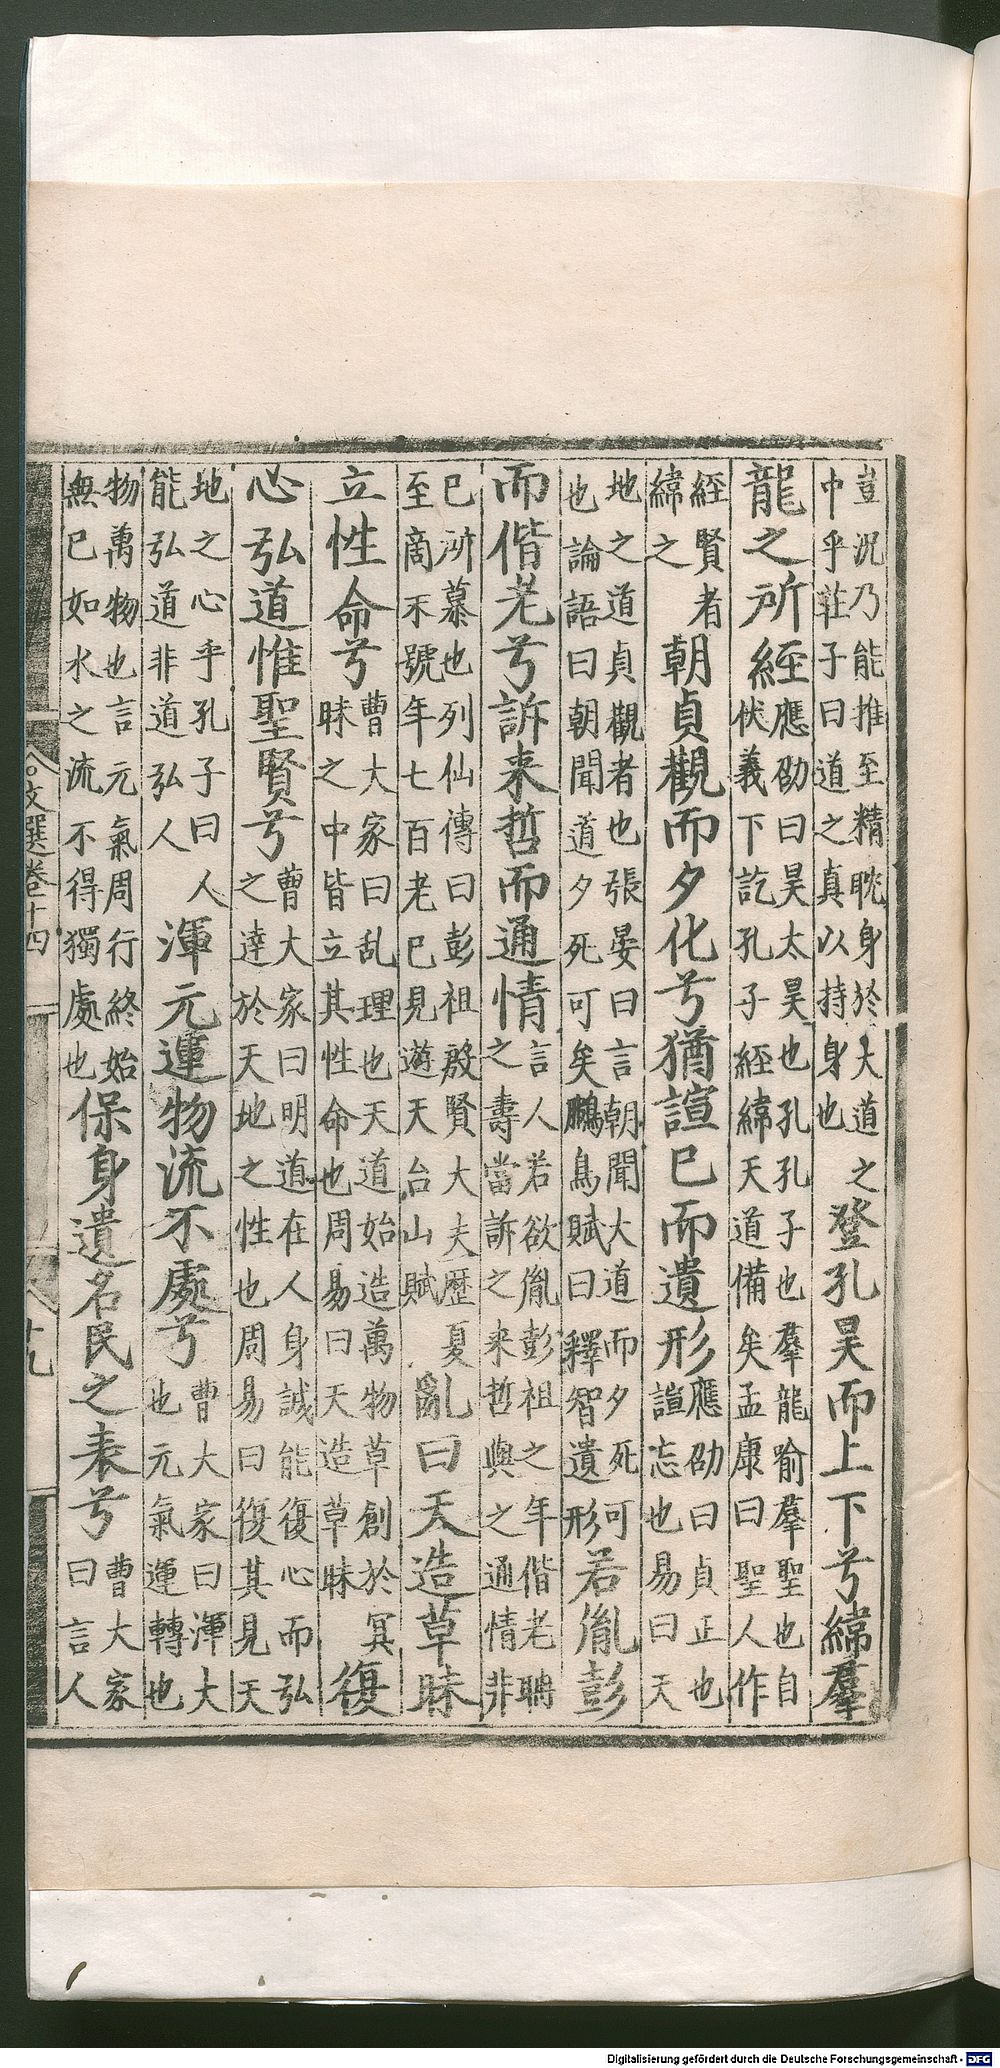 豈況乃能推至精眈身於大道之中乎莊子曰道之真以持身也登孔昊而上下兮緯羣
龍之所經應劭曰昊太昊也孔孔子也羣龍喻羣聖也自伏義下訖孔子經緯天道備矣孟康曰聖人作
經賢者緯之朝貞觀而夕化兮猶諠已而遺形應劭曰貞正也諠忘也易曰天
地之道貞觀者也張晏曰言朝聞大道而夕死可也論語曰朝聞道夕死可矣鵩鳥賦曰釋智遺形若胤彭
而偕老兮訴来哲而通情言人若欲胤彭祖之年偕老聃之壽當訴之来哲與之通情非
已所慕也列仙傳曰彭祖殷賢大夫歷夏至商不號年七百老已見遊天台山賦亂曰天造草昧
立性命兮曹大家曰乱理也天道始造萬物草創於冥昧之中皆立其性命也周易曰天造草昧復
心弘道惟聖賢兮曹大家曰明道在人身誠能復心而弘之達於天地之性也周易曰復其見天
地之心乎孔子曰人能弘道非道弘人渾元運物流不處兮曹大家曰渾大也元氣運轉也
物萬物也言元氣周行終始無已如水之流不得獨處也保身遺名民之表兮曹大家曰言人
文選卷十四
十九
Digitalisierung gefördert durch die Deutsche Forschungsgemeinschaft - DFG